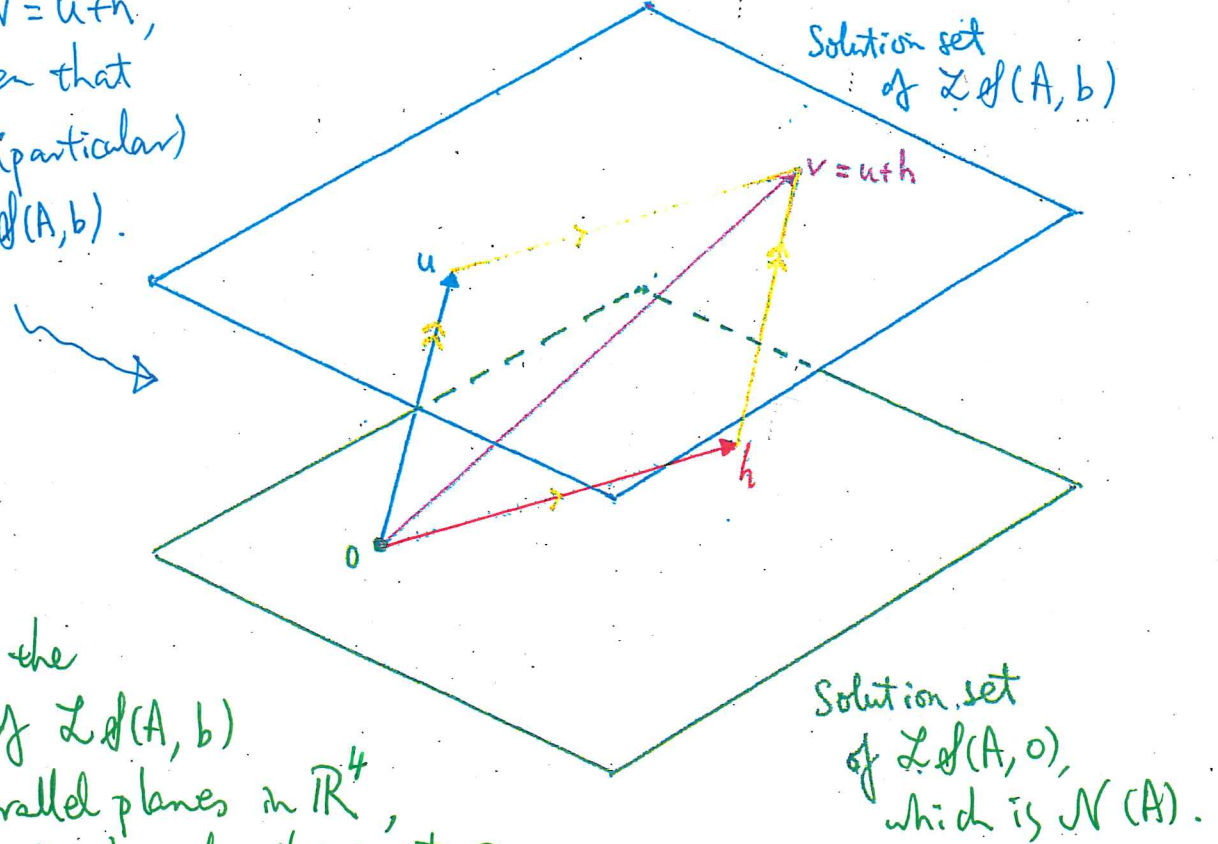 v = u+h,
that
(particular)
LS(A,b).
Solution set
of LS(A, b)
v = u+h
u
h
0
the
of LS(A, b)
planes in ℝ⁴,
Solution set
of LS(A, 0),
which is N(A).